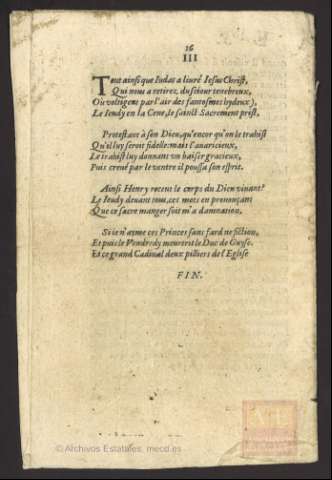 16
III
Tout ainsi que Iudas a liuré Iesus Christ,
Qui nous a retirez, du seiour tenebreux,
Où voltigent par l'air des fantosmes hydeux),
Le Ieudy en la Cene, le sainct Sacrement prist,
Protestant à son Dieu, qu'encor qu'on le trahist
Qu'il luy seroit fidelle: mais l'auaricieux,
Le trahist luy donnant vn baiser gracieux,
Puis creué par le ventre il poussa son esprit.
Ainsi Henry receut le corps du Dieu viuant?
Le Ieudy deuant tous, ces mots en prononçant
Que ce sacre manger soit m'a damnation,
Si ie n'ayme ces Princes sans fard ne fiction,
Et puis le Vendredy meurtrit le Duc de Guyse.
Et ce grand Cadinal deux pilliers de l'Eglise
FIN.
© Archivos Estatales, mecd.es